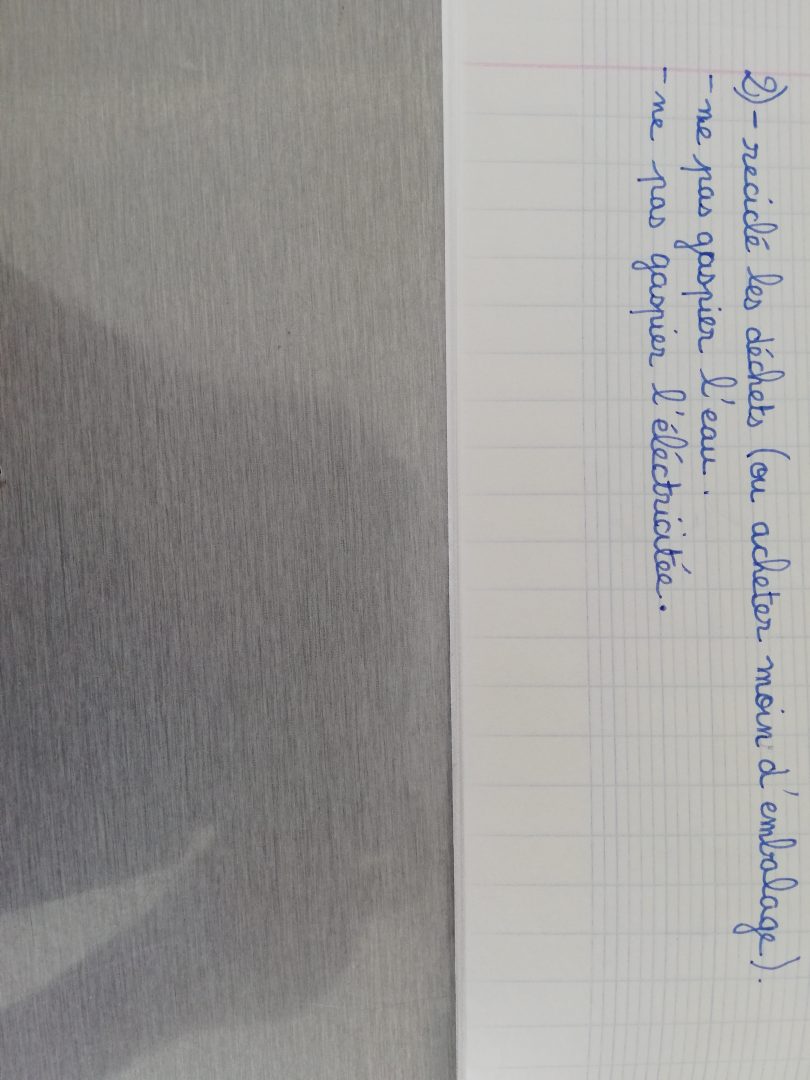 2) - reciclé les déchets (ou acheter moin d'embalage).
- ne pas gaspier l'eau.
- ne pas gaspier l'éléctricitée.